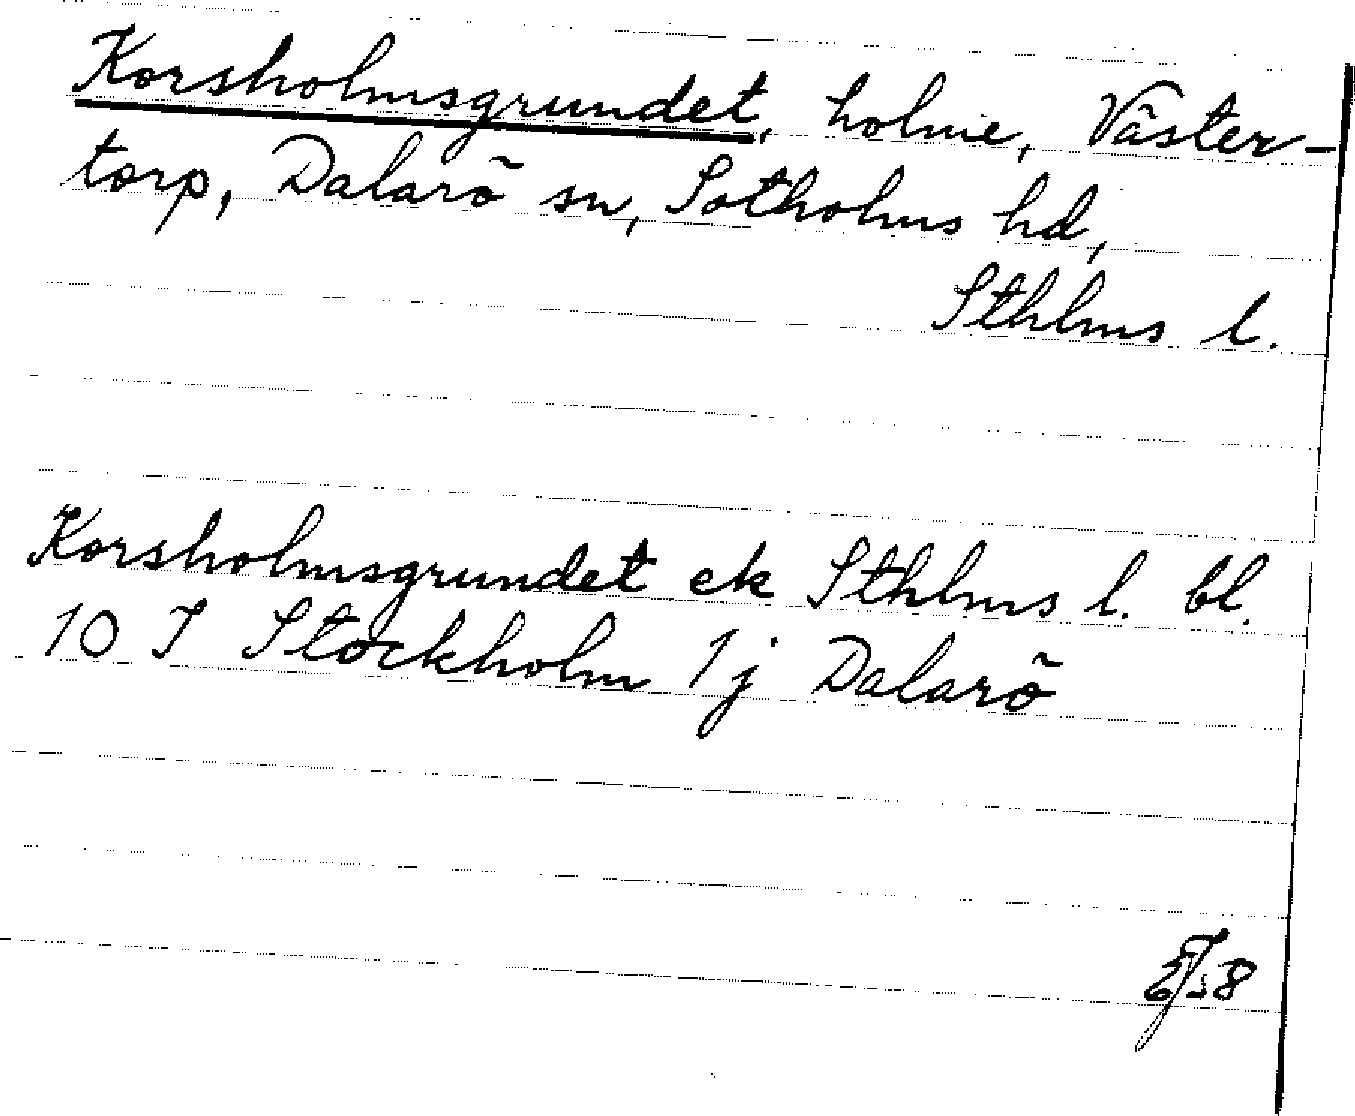 Korsholmsgrundet, holme, Väster-
torp, Dalarö sn, Sotholms hd,
Sthlms l.
Korsholmsgrundet ek Sthlms l. bl.
10 I Stockholm 1j Dalarö